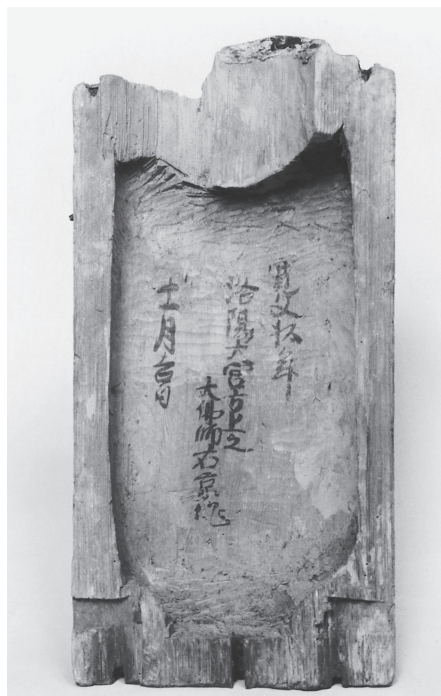 寛文拾年
洛陽大宮方上之
大佛師右京作
十一月吉日